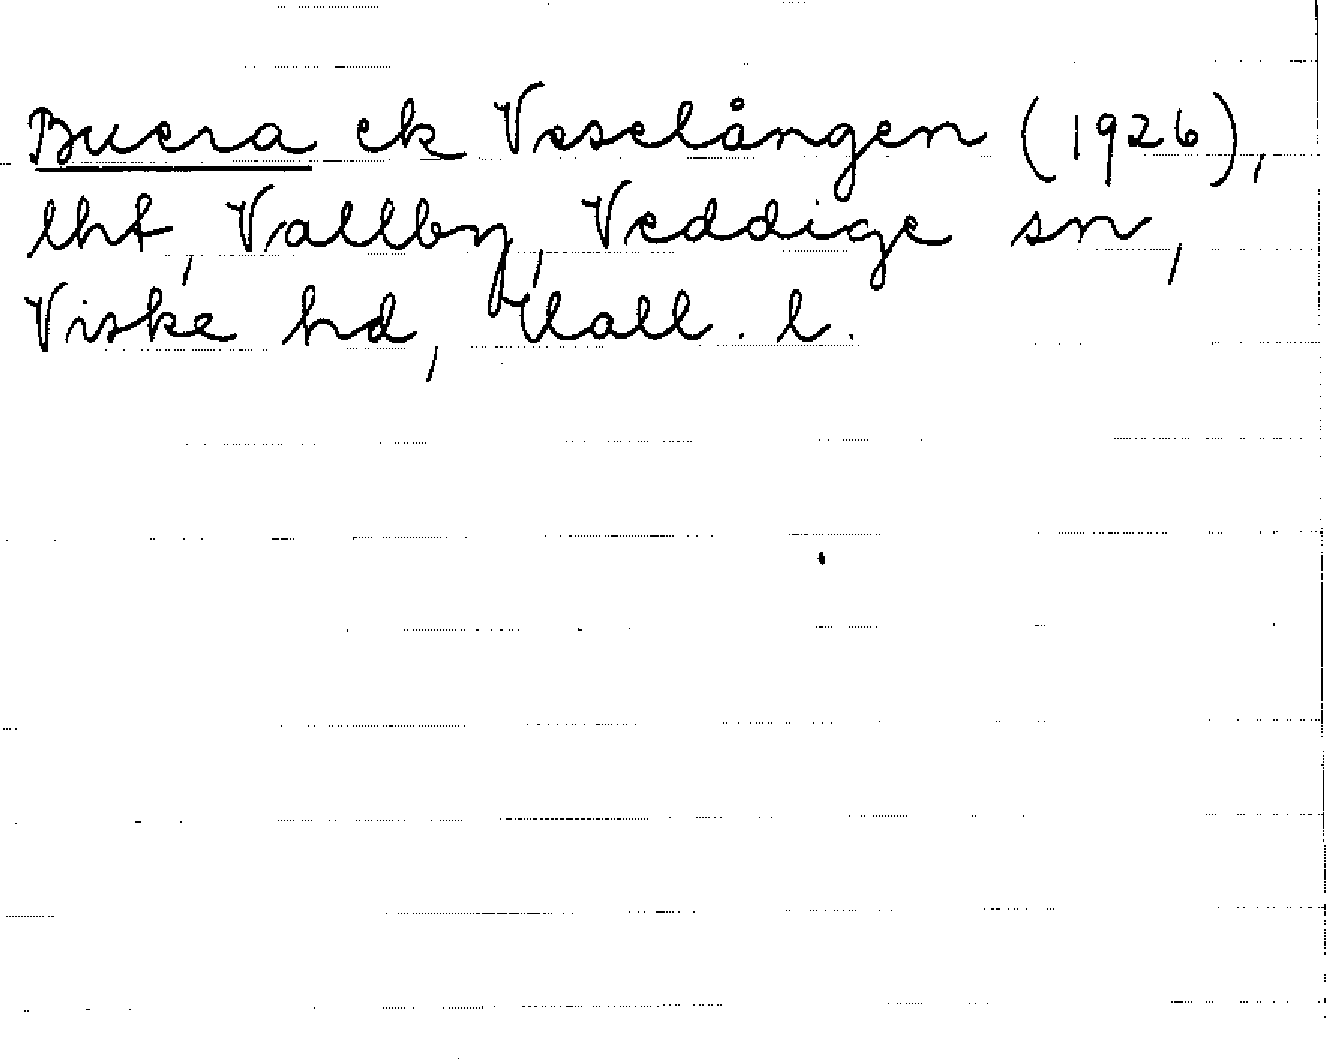 Buera ek Veselången (1926),
lht, Vallby, Veddige sn,
Viske hd, Hall. l.